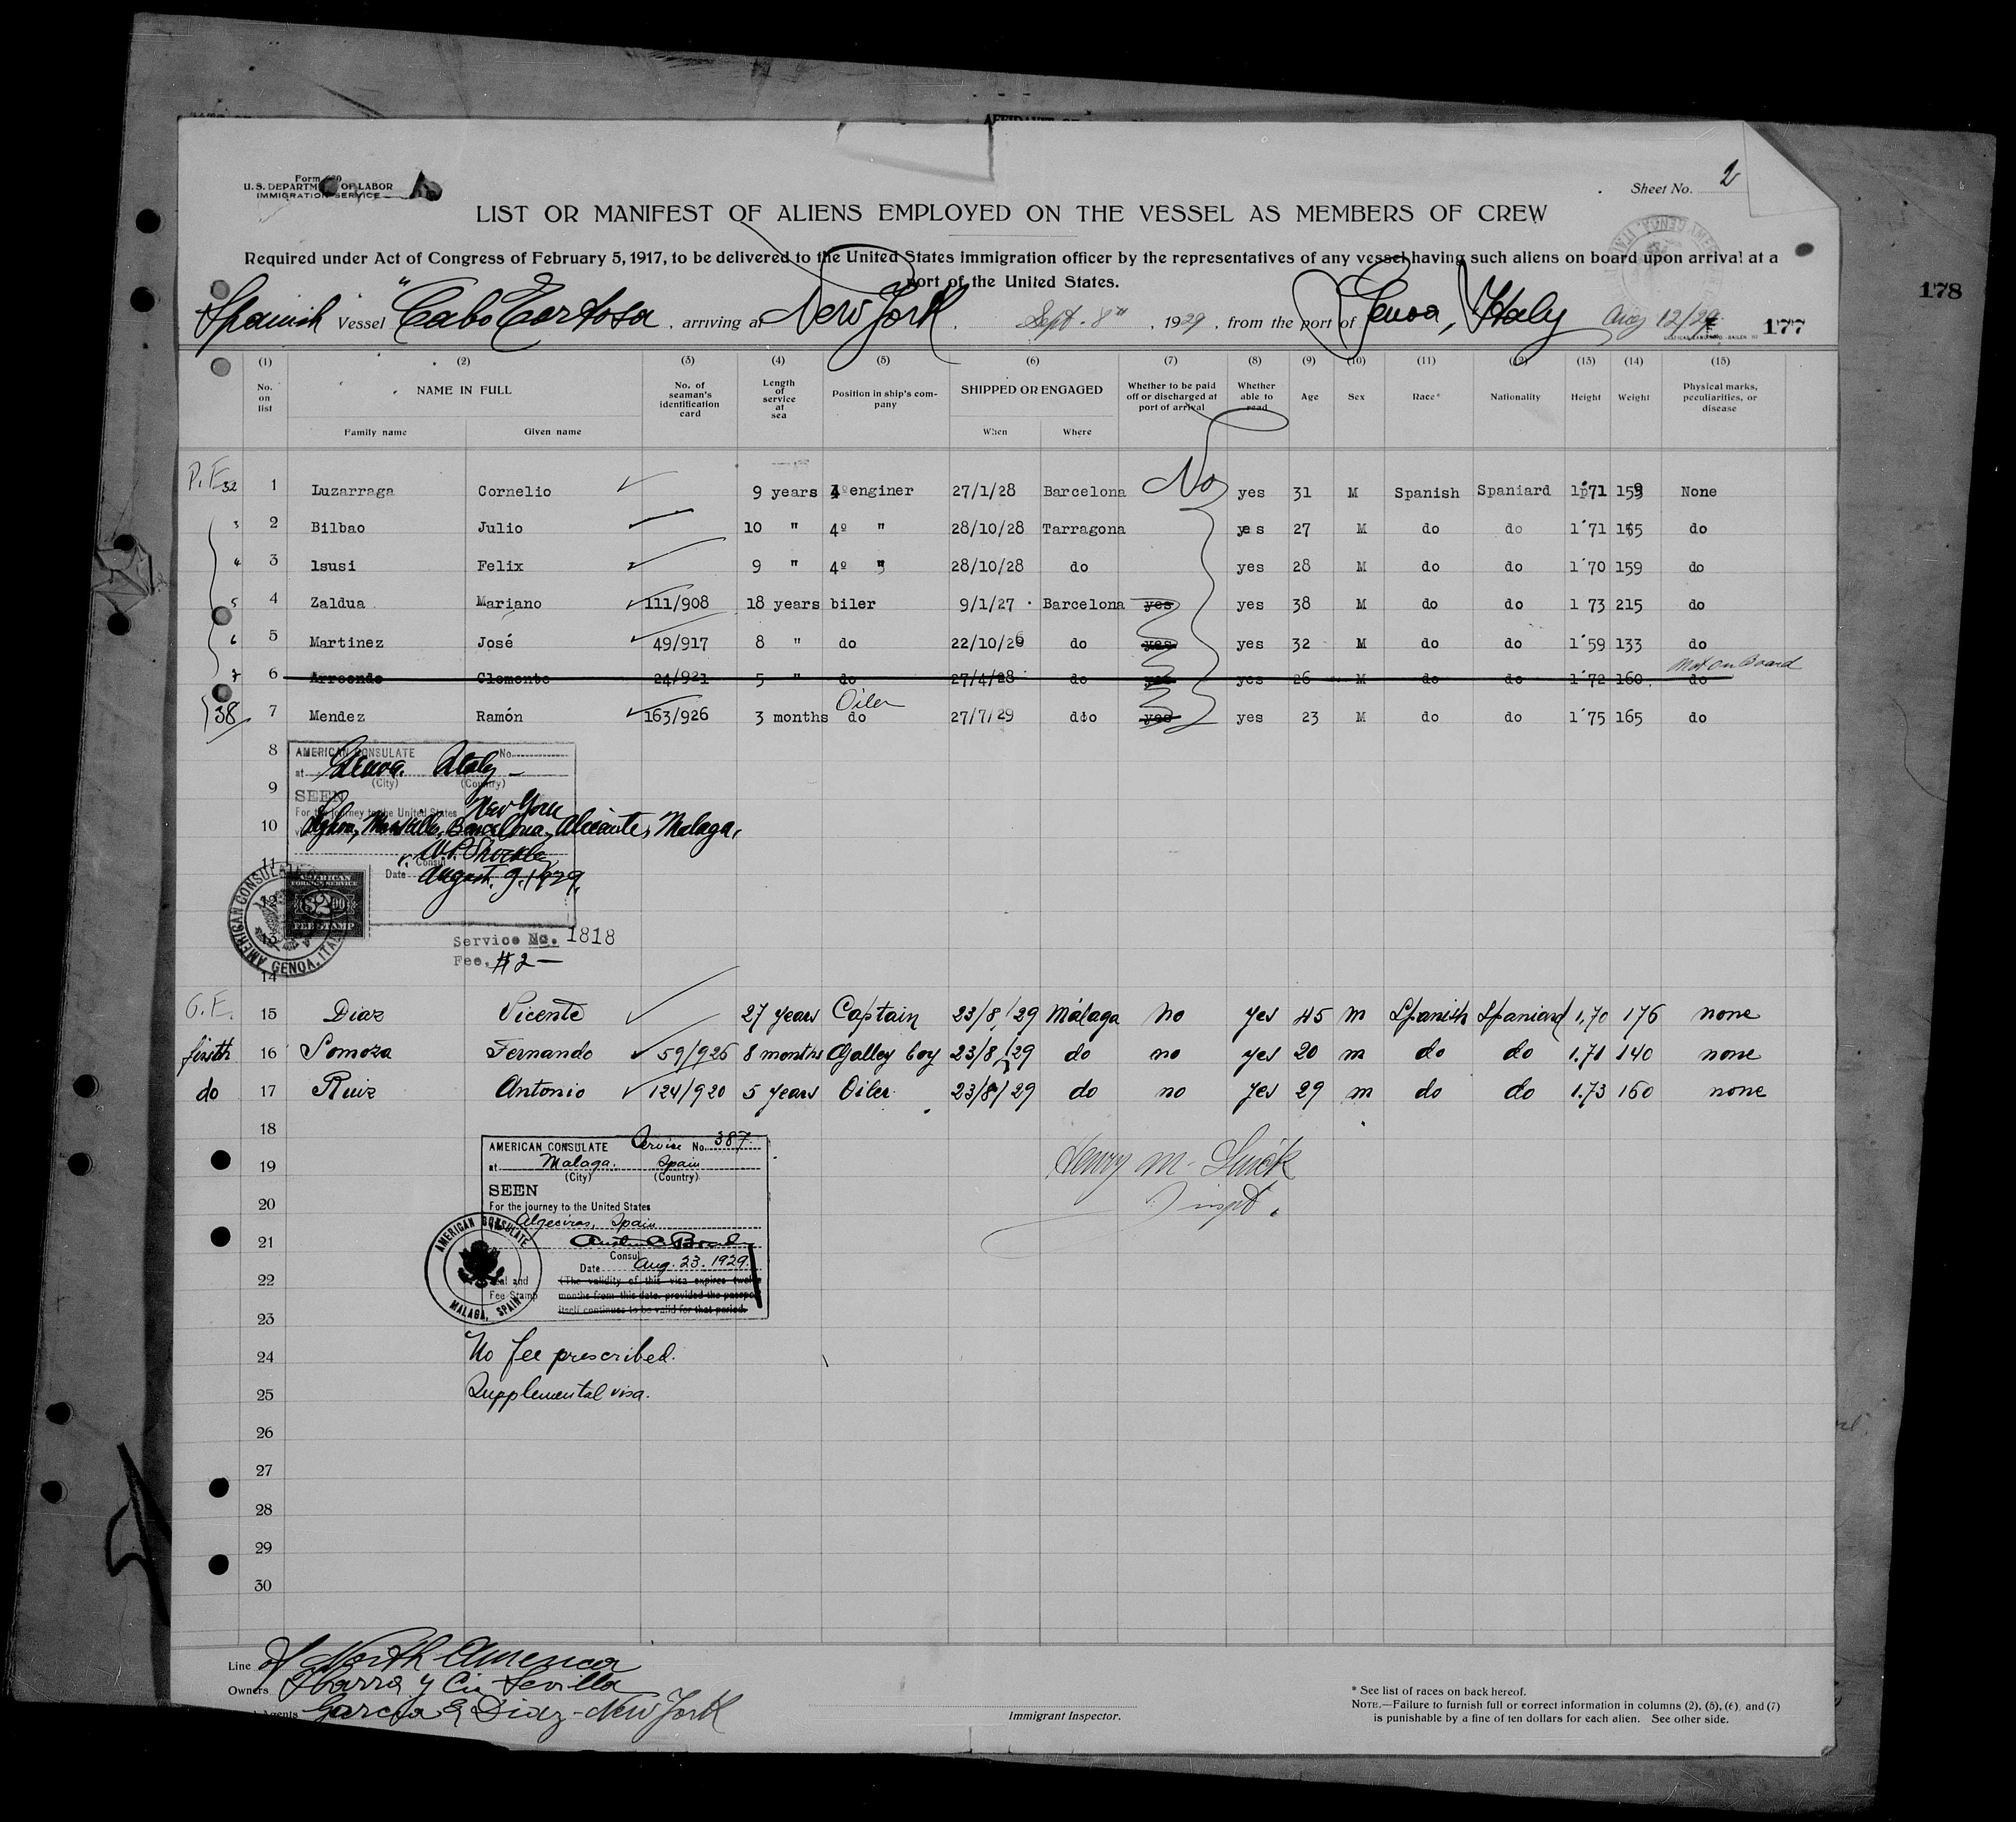 Form 680
U. S. DEPARTMENT OF LABOR
IMMIGRATION SERVICE
Sheet No. 2
LIST OR MANIFEST OF ALIENS EMPLOYED ON THE VESSEL AS MEMBERS OF CREW
Required under Act of Congress of February 5, 1917, to be delivered to the United States immigration officer by the representatives of any vessel having such aliens on board upon arrival at a
port of the United States.
178
Spanish Vessel "Cabo Tortosa, arriving at New York, Sept. 8th, 1929, from the port of Genoa, Italy Aug 12/29 177
(1) (2) (3) (4) (5) (6) (7) (8) (9) (10) (11) (12) (13) (14) (15)
No. on list NAME IN FULL No. of seaman's identification card Length of service at sea Position in ship's company SHIPPED OR ENGAGED Whether to be paid off or discharged at port of arrival Whether able to read Age Sex Race* Nationality Height Weight Physical marks, peculiarities, or disease
Family name Given name When Where
P.F. 32 1 Luzarraga Cornelio 9 years 4º enginer 27/1/28 Barcelona No yes 31 M Spanish Spaniard 1'71 159 None
3 2 Bilbao Julio 10 " 4º " 28/10/28 Tarragona yes 27 M do do 1'71 165 do
4 3 lsusi Felix 9 " 4º " 28/10/28 do yes 28 M do do 1'70 159 do
5 4 Zaldua Mariano 111/908 18 years biler 9/1/27 Barcelona yes yes 38 M do do 1 73 215 do
6 5 Martinez José 49/917 8 " do 22/10/26 do yes yes 32 M do do 1'59 133 do
Not on Board
7 6 Arreondo Clemente 24/921 5 " do 27/4/28 do yes yes 26 M do do 1'72 160 do
Oiler
38 7 Mendez Ramón 163/926 3 months do 27/7/29 do yes yes 23 M do do 1'75 165 do
8 AMERICAN CONSULATE No.
at Genoa. Italy
(City) (Country)
9 SEEN
For the journey to the United States New York
10 Marseille, Barcelona, Alicante, Malaga,
11 Consul
Date August. 9. 1929.
12 AMERICAN FOREIGN SERVICE $2.00 FEE STAMP
13 AMERICAN CONSULATE GENOA, ITALY
Service No. 1818
Fee, $2—
14
15 Diaz Vicente 27 years Captain 23/8/29 Málaga no yes 45 m Spanish Spaniard 1,70 176 none
16 Somoza Fernando 59/926 8 months Galley boy 23/8/29 do no yes 20 m do do 1.71 140 none
do 17 Ruiz Antonio 124/920 5 years Oiler 23/8/29 do no yes 29 m do do 1.73 160 none
18
AMERICAN CONSULATE Service No. 387.
19 at Malaga. Spain
(City) (Country)
SEEN
20 For the journey to the United States
Algeciras, Spain
21
Consul
Date Aug. 23. 1929.
22 Seal and Fee Stamp (The validity of this visa expires twelve
months from this date, provided the passport
itself continues to be valid for that period.
AMERICAN CONSULATE MALAGA, SPAIN
Henry M.
Inspt.
23
24 No fee prescribed.
25 Supplemental visa.
26
27
28
29
30
Line of North America
Owners Ybarra y Cia Sevilla
Agents Garcia & Diaz - New York
Immigrant Inspector.
* See list of races on back hereof.
NOTE.—Failure to furnish full or correct information in columns (2), (5), (6), and (7)
is punishable by a fine of ten dollars for each alien. See other side.